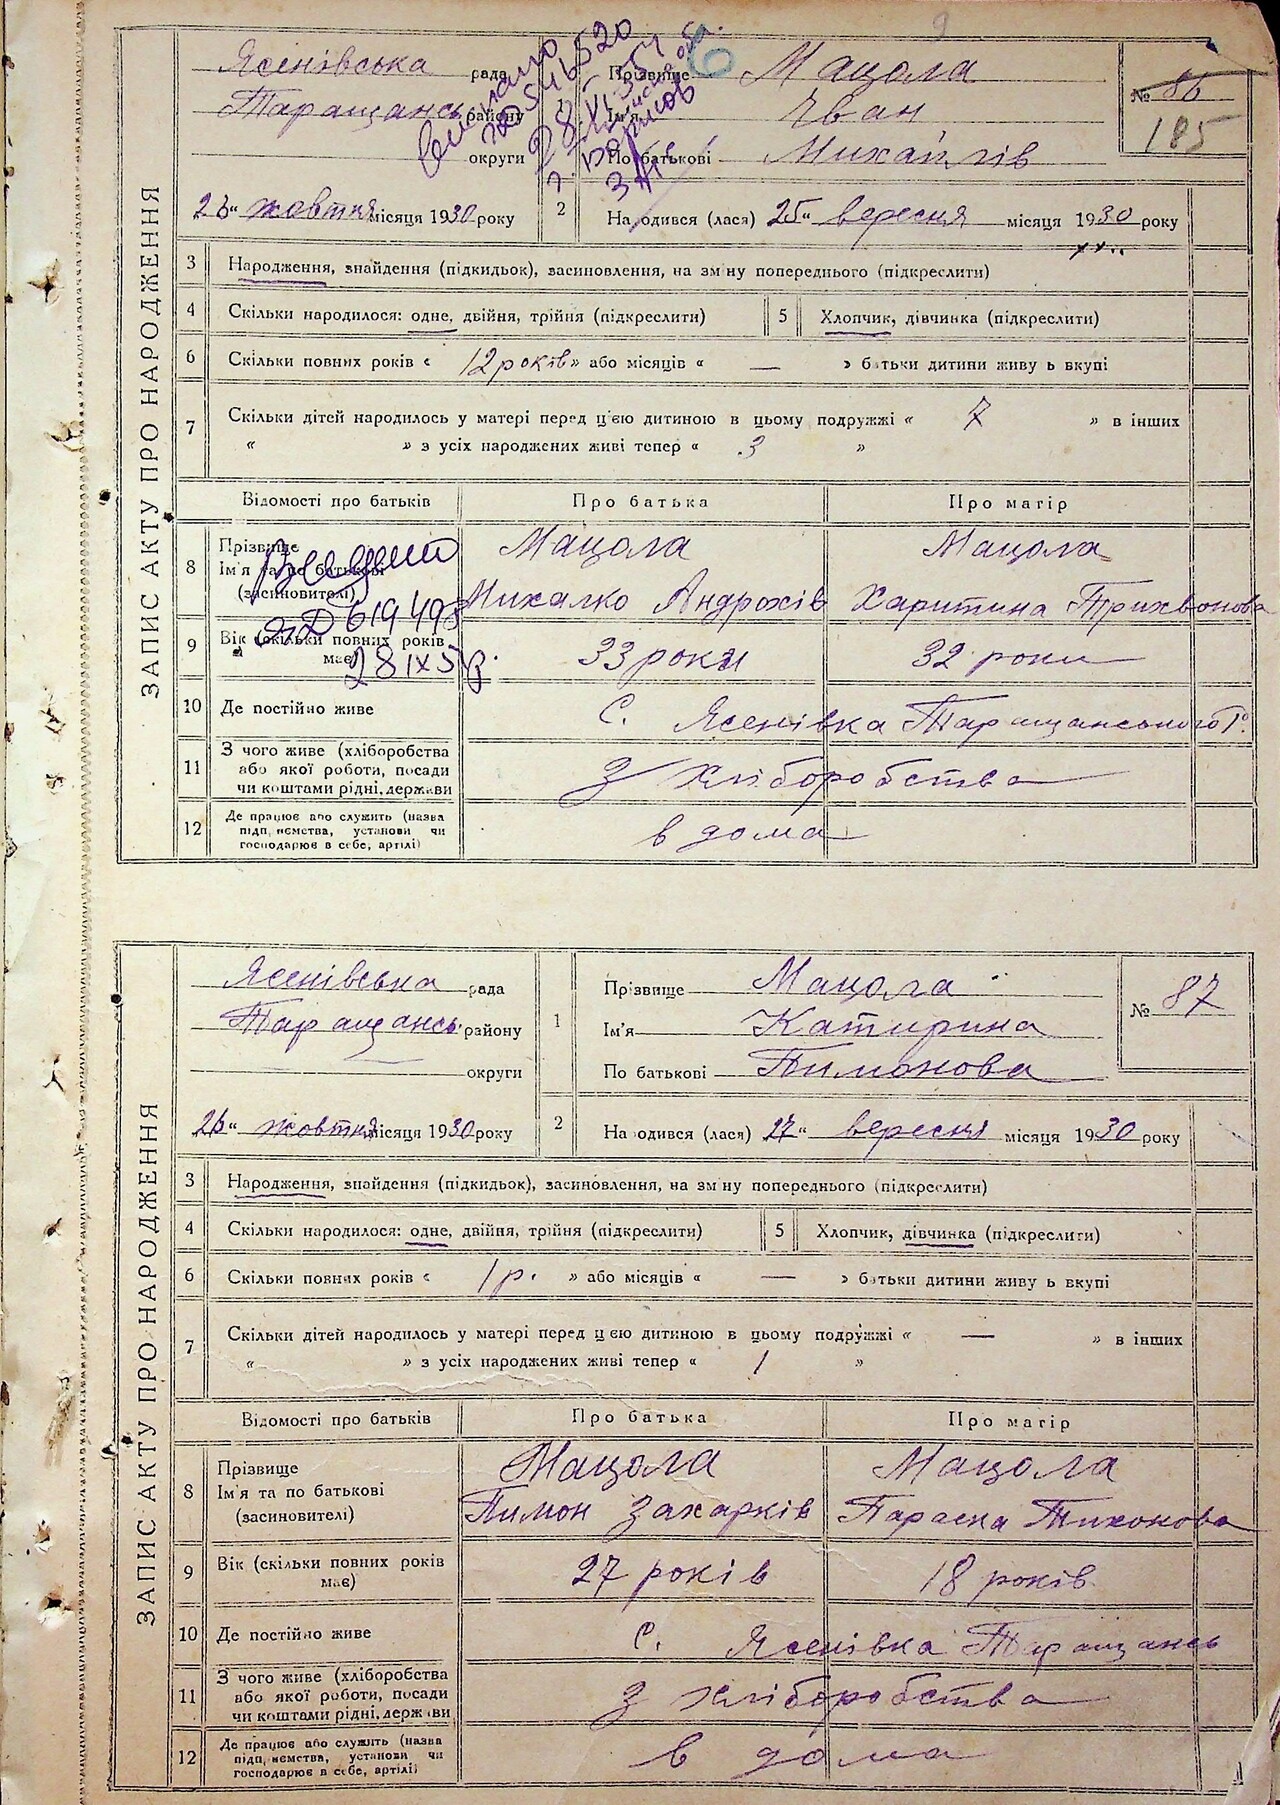 ЗАПИС АКТУ ПРО НАРОДЖЕННЯ
Ясенівська рада
Таращансь району
округи
видано
28.XI.55
Прізвище Мацола
Ім'я Іван
По батькові Михайлів
№ 86
185
26 „ жовтня місяця 1930 року
2 На одився (лася) 25 „ вересня місяця 1930 року
3 Народження, знайдення (підкидьок), засиновлення, на зм ну попереднього (підкреслити)
4 Скільки народилося: одне, двійня, трійня (підкреслити) 5 Хлопчик, дівчинка (підкреслити)
6 Скільки повних років « 12 років » або місяців « — » батьки дитини живу ь вкупі
7 Скільки дітей народилось у матері перед цією дитиною в цьому подружжі « 7 » в інших
« » з усіх народжених живі тепер « 3 »
Відомості про батьків Про батька Про матір
8 Прізвище Мацола Мацола
Ім'я та по батькові Михалко Андрохів Харитина Трихвонова
(засиновителі)
9 Вік (скільки повних років має) 33 роки 32 роки
10 Де постійно живе С. Ясенівка Таращанського
11 З чого живе (хліборобства З хліборобства
або якої роботи, посади
чи коштами рідні, держави
12 Де працює або служить (назва в дома
підп иємства, установи чи
господарює в себе, артілі)
ЗАПИС АКТУ ПРО НАРОДЖЕННЯ
Ясенівська рада
Таращансь. району
округи
1 Прізвище Мацола
Ім'я Катирина
По батькові Пимонова
№ 87
26 „ жовтня місяця 1930 року
2 На одився (лася) 27 „ вересня місяця 1930 року
3 Народження, знайдення (підкидьок), засиновлення, на зм ну попереднього (підкреслити)
4 Скільки народилося: одне, двійня, трійня (підкреслити) 5 Хлопчик, дівчинка (підкреслити)
6 Скільки повних років « 1 р. » або місяців « — » батьки дитини живу ь вкупі
7 Скільки дітей народилось у матері перед цією дитиною в цьому подружжі « — » в інших
« » з усіх народжених живі тепер « 1 »
Відомості про батьків Про батька Про матір
8 Прізвище Мацола Мацола
Ім'я та по батькові Пимон Захарків Параска Тихонова
(засиновителі)
9 Вік (скільки повних років має) 27 років 18 років
10 Де постійно живе С. Ясенівка Таращансь
11 З чого живе (хліборобства З хліборобства
або якої роботи, посади
чи коштами рідні, держ ви
12 Де працює або служить (назва в дома
підп иємства, установи чи
господарює в себе, артілі)